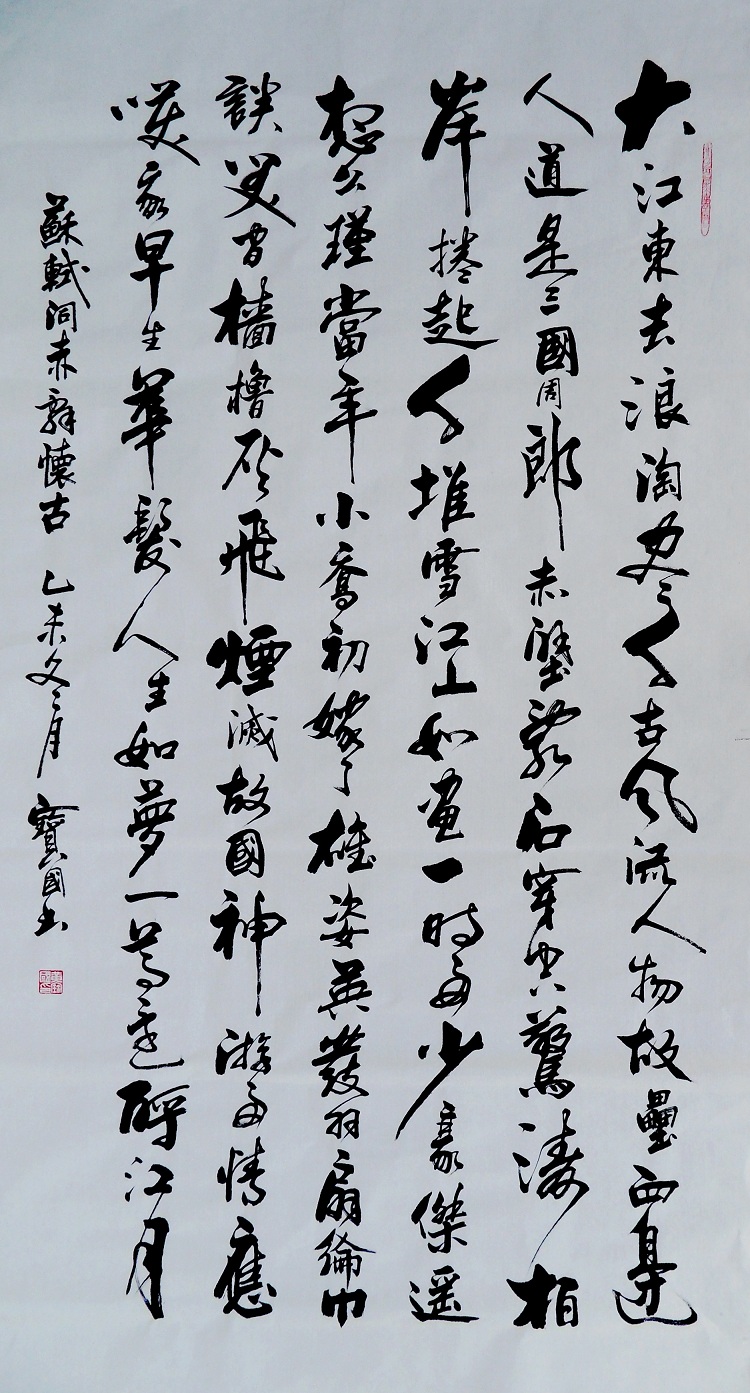 大江東去浪淘盡千古風流人物故壘西邊
人道是三國周郎赤壁亂石穿空驚濤拍
岸捲起千堆雪江山如畫一時多少豪傑遥
想公瑾當年小喬初嫁了雄姿英發羽扇綸巾
談笑間檣櫓灰飛煙滅故國神游多情應
笑我早生華髮人生如夢一尊還酹江月
蘇軾詞赤壁懷古 乙未冬月 寶國書